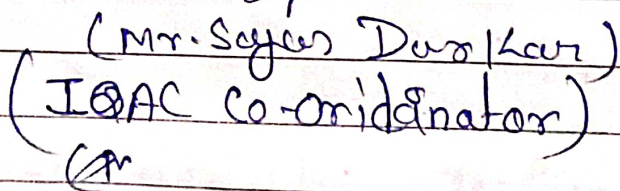 (Mr. Sayas Darlkar)
(IQAC Co-oriddinator)